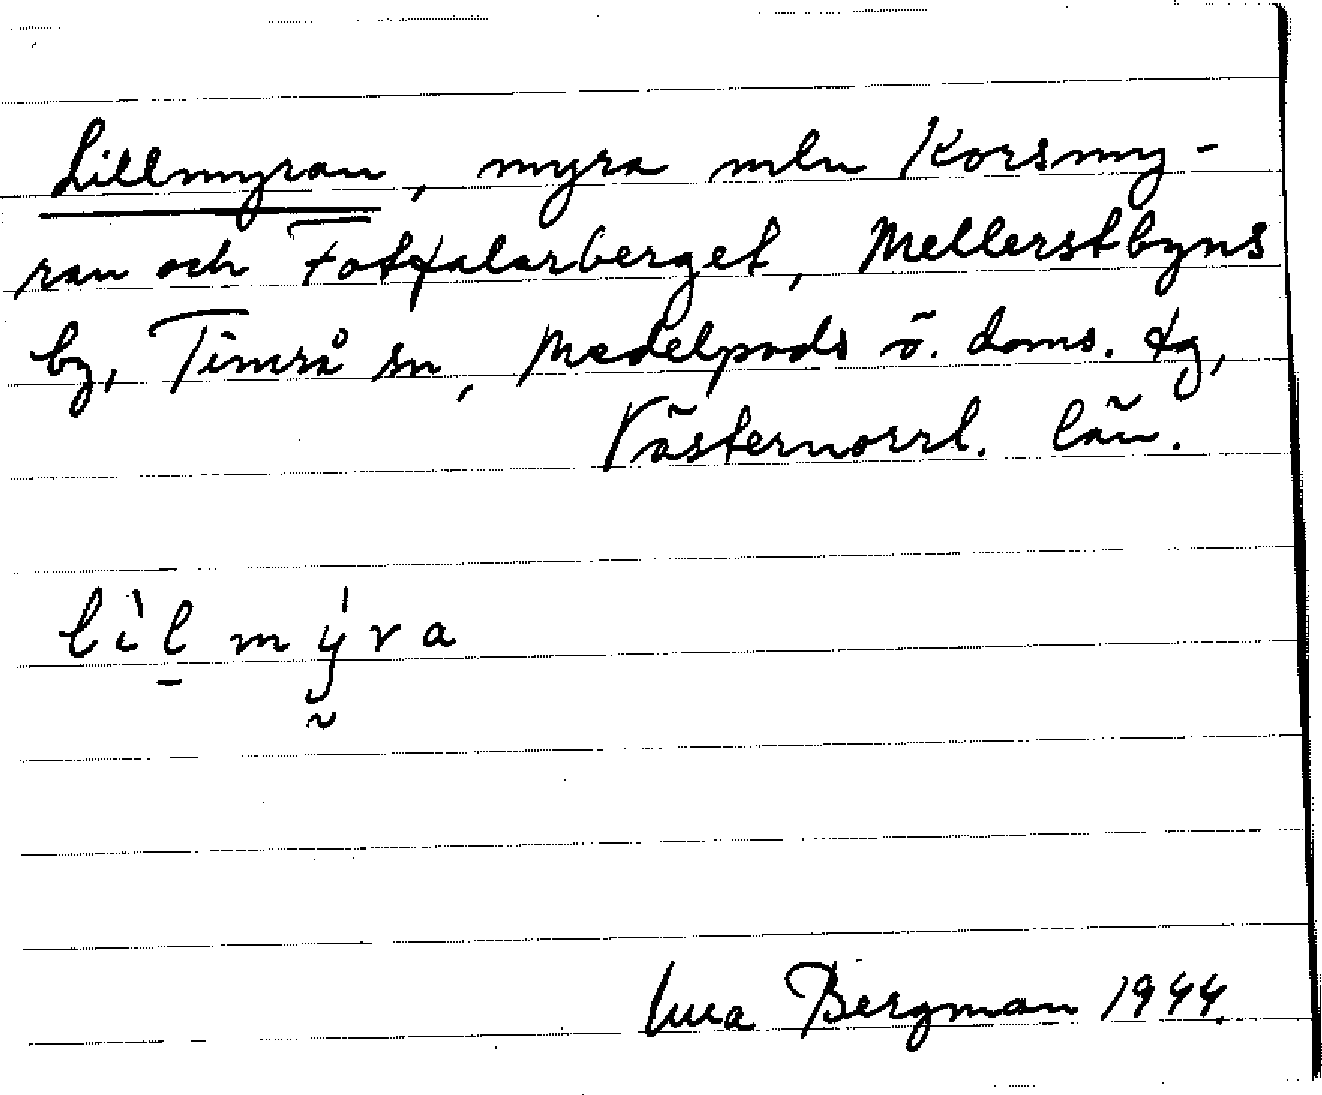 Lillmyran, myra mln Korsmy-
ran och Fotfalarberget, Mellerstbyns
by, Timrå sn, Medelpads ö. doms. tg,
Västernorrl. län.
lìl mýra
Bergman 1944.